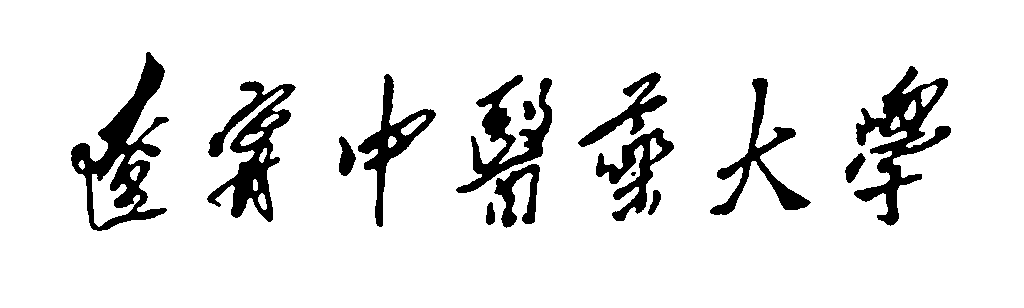 遼寧中醫藥大學